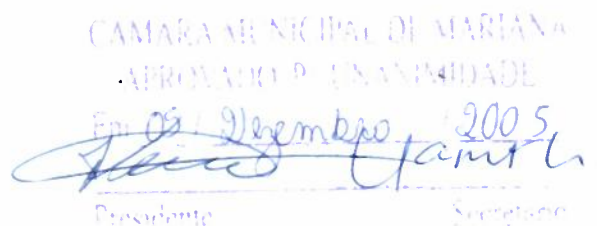 CAMARA MUNICIPAL DE MARIANA
APROVADO P/ UNANIMIDADE
Em 09 / Dezembro / 2005
Presidente Secretario